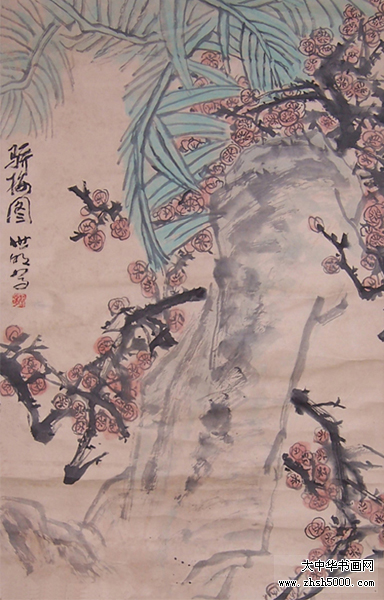 骄梅图
世明写
大中华书画网
www.zhsh5000.com